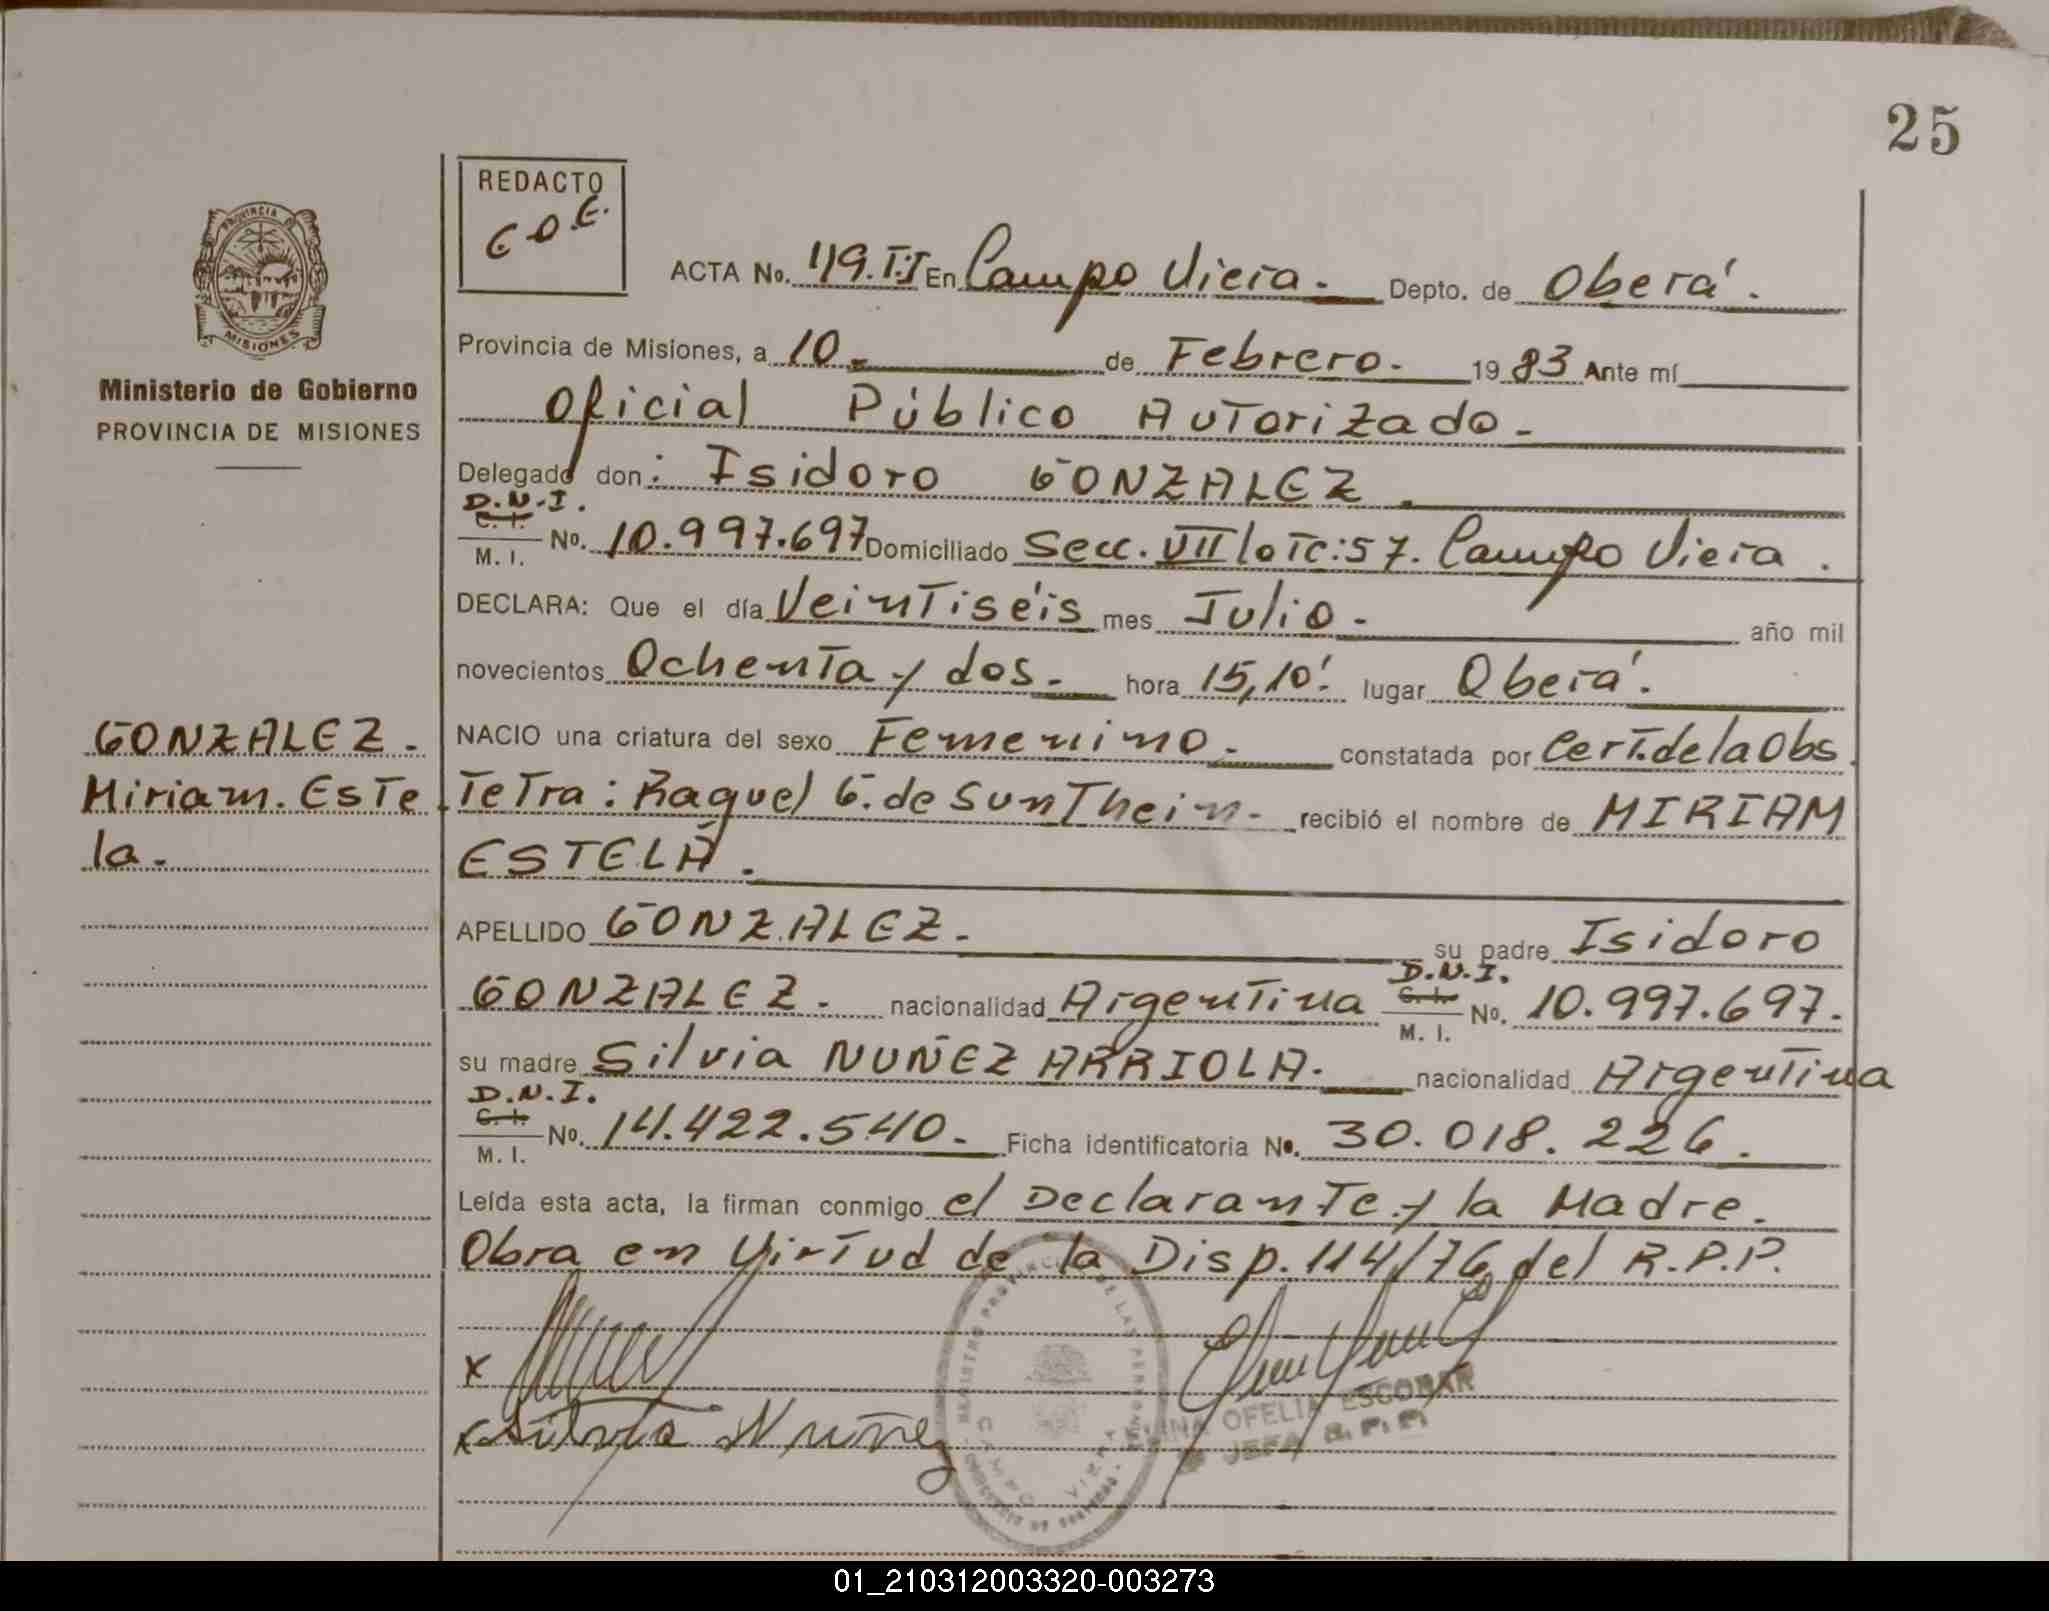 25
REDACTO
G O E.
PROVINCIA
MISIONES
Ministerio de Gobierno
PROVINCIA DE MISIONES
ACTA No. 119. En Campo Viera. Depto. de Oberá.
Provincia de Misiones, a 10. de Febrero. 1983 Ante mí
Oficial Público Autorizado.
Delegado don: Isidoro GONZALEZ.
D.N.I.
C. I.
M. I. No. 10.997.697 Domiciliado Secc. VII lote: 57. Campo Viera.
DECLARA: Que el día Veintiséis mes Julio. año mil
novecientos Ochenta y dos. hora 15,10'. lugar Oberá.
NACIO una criatura del sexo Femenino. constatada por Cert. de la Obs
tetra: Raquel G. de Suntheim. recibió el nombre de MIRIAM
ESTELA.
GONZALEZ.
Miriam. Este
la.
APELLIDO GONZALEZ. su padre Isidoro
D.N.I.
GONZALEZ. nacionalidad Argentina C. I. M. I. No. 10.997.697.
su madre Silvia NUÑEZ ARRIOLA. nacionalidad Argentina
D.N.I.
C. I.
M. I. No. 14.422.540. Ficha identificatoria No. 30.018.226.
Leída esta acta, la firman conmigo el Declarante y la Madre.
Obra en Virtud de la Disp. 114/76 del R.P.P.
x
x Silvia Nuñez
REGISTRO PROVINCIAL DE LAS PERSONAS
CAMPO VIERA
MINISTERIO DE GOBIERNO
OFELIA ESCOBAR
JEFA R. P. P.
01_210312003320-003273